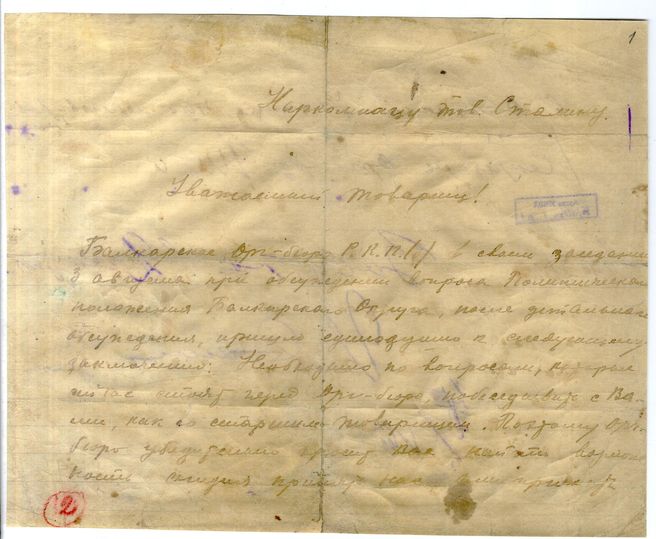 1
Наркомнацу тов. Сталину.
Уважаемый товарищ!
Балкарское Орг-бюро Р.К.П./ в своем заседании
3 августа при обсуждении вопроса Политического
положения Балкарского Округа, после детального
обсуждения, пришло единодушно к следующему
заключению: Необходимо по вопросам, которые
сейчас стоят перед Орг-бюро, побеседовать с Ва-
ми, как со старшим товарищем. Поэтому Орг-
бюро убедительно просит Вас найти возмож-
ность сегодня принять нас, или
2